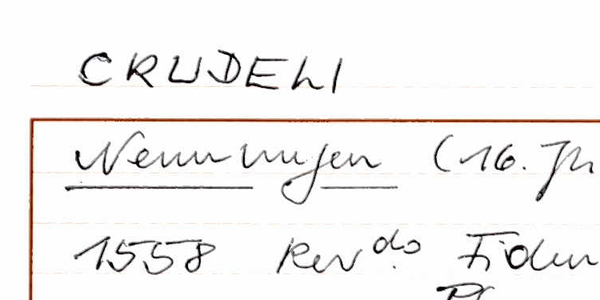 CRUDELI
Nennungen (16. Jh
1558 Rev.do